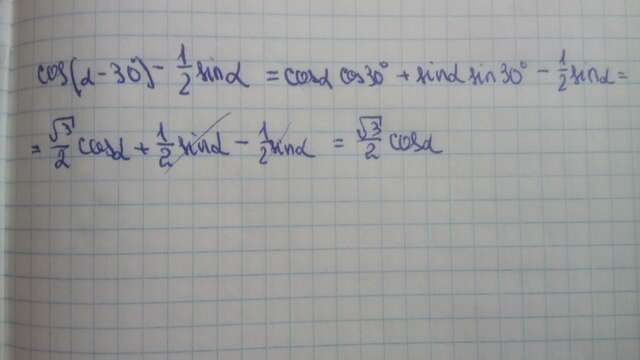 cos(α-30°)-1/2 sinα = cosα cos30° + sinα sin30° - 1/2 sinα =
= √3/2 cosα + 1/2 sinα - 1/2 sinα = √3/2 cosα